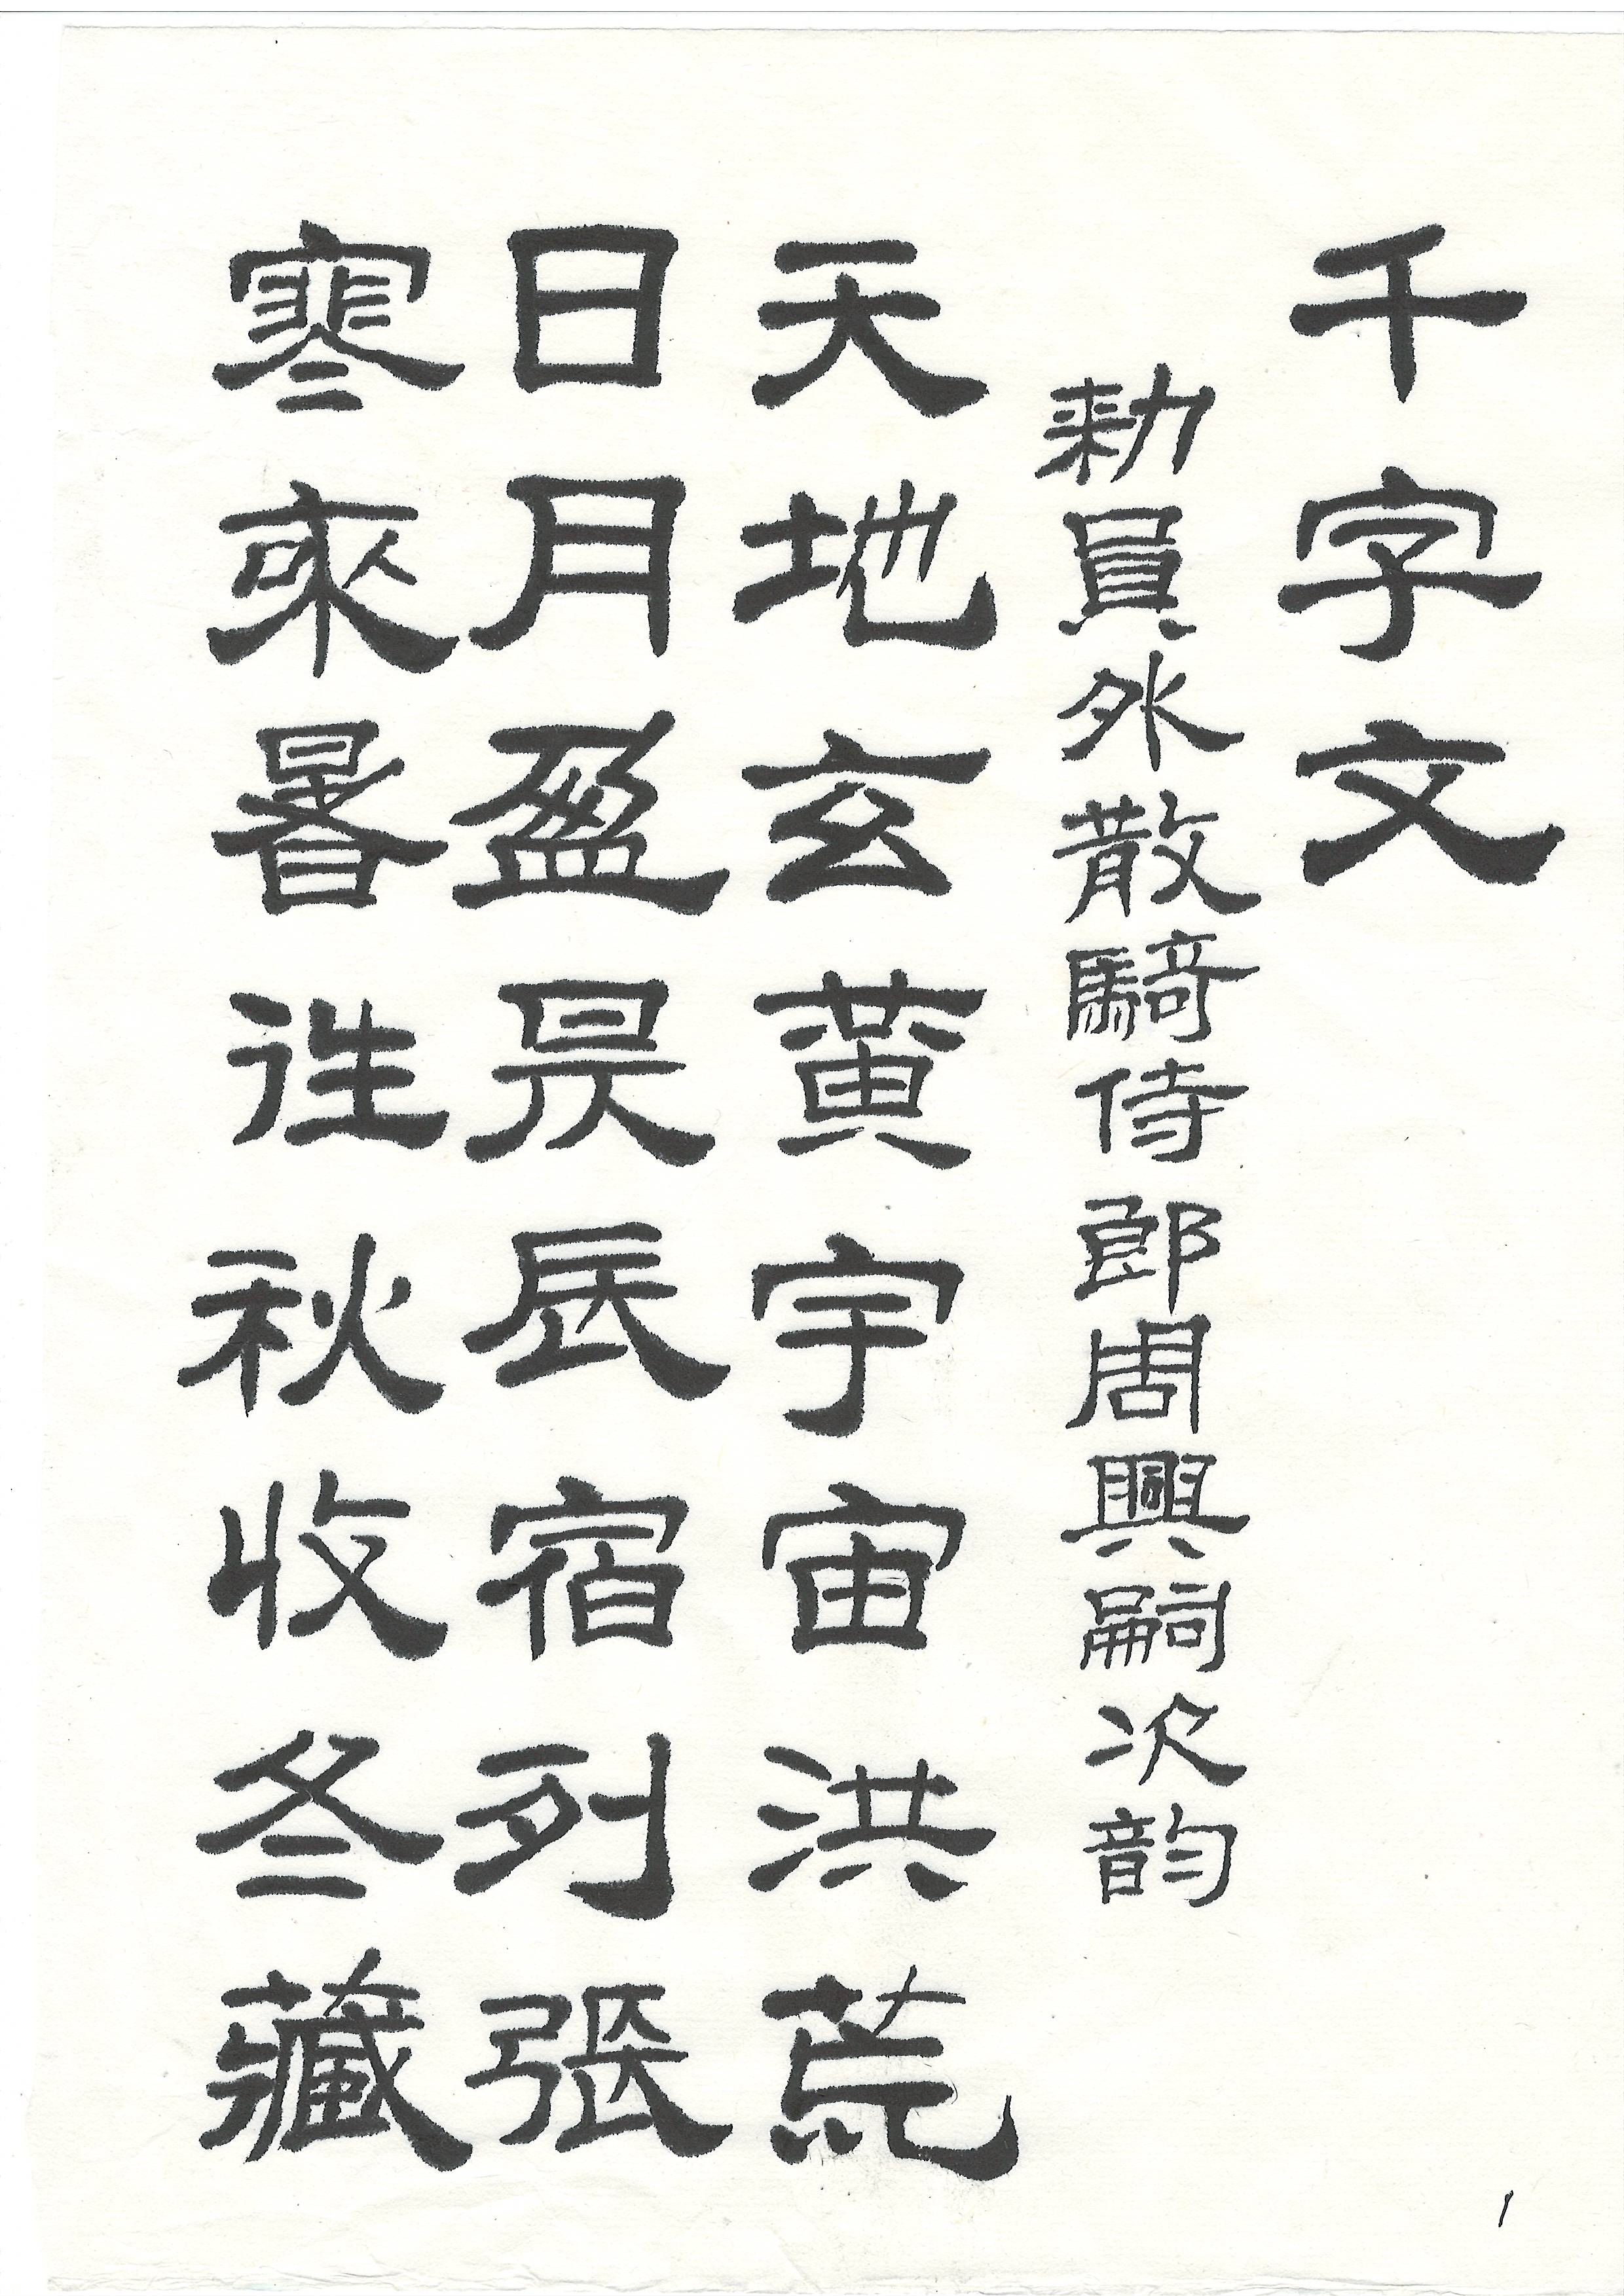 千字文
勑員外散騎侍郎周興嗣次韵
天地玄黃宇宙洪荒
日月盈昃辰宿列張
寒來暑往秋收冬藏
1